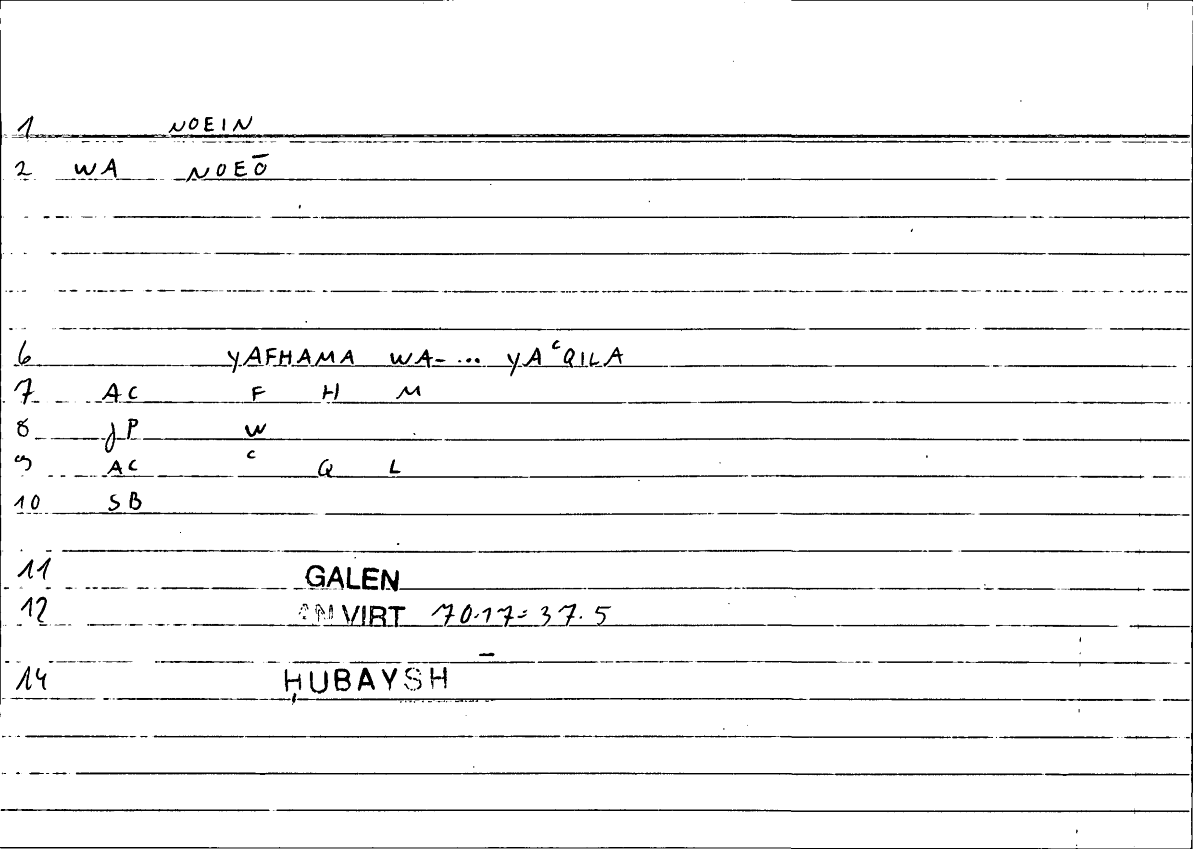 1 NOEIN
2 WA NOEŌ
6 YAFHAMA WA-... YAᶜQILA
7 AC F H M
8 JP W
9 AC ᶜ Q L
10 SB
11 GALEN
12 AN VIRT 70.17=37.5
14 ḤUBAYSH